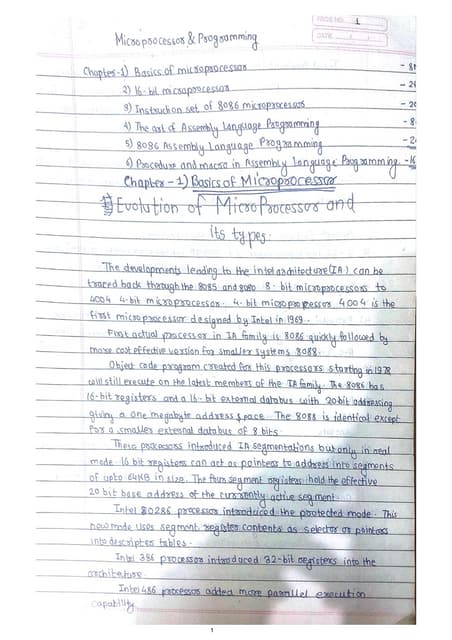 PAGE NO. 1
DATE
Microprocessor & Programming
Chapter-1) Basics of microprocessor - 8
2) 16-bit microprocessor - 2
3) Instruction set of 8086 microprocessors - 20
4) The art of Assembly Language Programming - 8
5) 8086 Assembly Language Programming - 2
6) Procedure and macro in Assembly Language Programming -16
Chapter - 1) Basics of Microprocessor
Evolution of MicroProcessor and
its types.
The developments leading to the intel architecture (IA) can be
traced back through the 8085 and 8080 8-bit microprocessors to
4004 4-bit microprocessor. 4-bit microprocessor 4004 is the
first microprocessor designed by Intel in 1969.
First actual processor in IA family is 8086 quickly followed by
more cost effective version for smaller systems 8088.
Object code program created for this processors starting in 1978
will still execute on the latest members of the IA family. The 8086 has
16-bit registers and a 16-bit external databus with 20bit addressing
giving a one megabyte address space. The 8088 is identical except
for a smaller external databus of 8 bits.
These processors introduced IA segmentations but only in real
mode 16 bit registers can act as pointers to address into segments
of upto 64KB in size. The four segment registers hold the effective
20 bit base address of the currently active segment.
Intel 80286 processor introduced the protected mode. This
new mode uses segment register contents as selector or pointers
into descriptor tables.
Intel 386 processor introduced 32-bit registers into the
architecture.
Intel 486 processor added more parallel execution
capability.
1